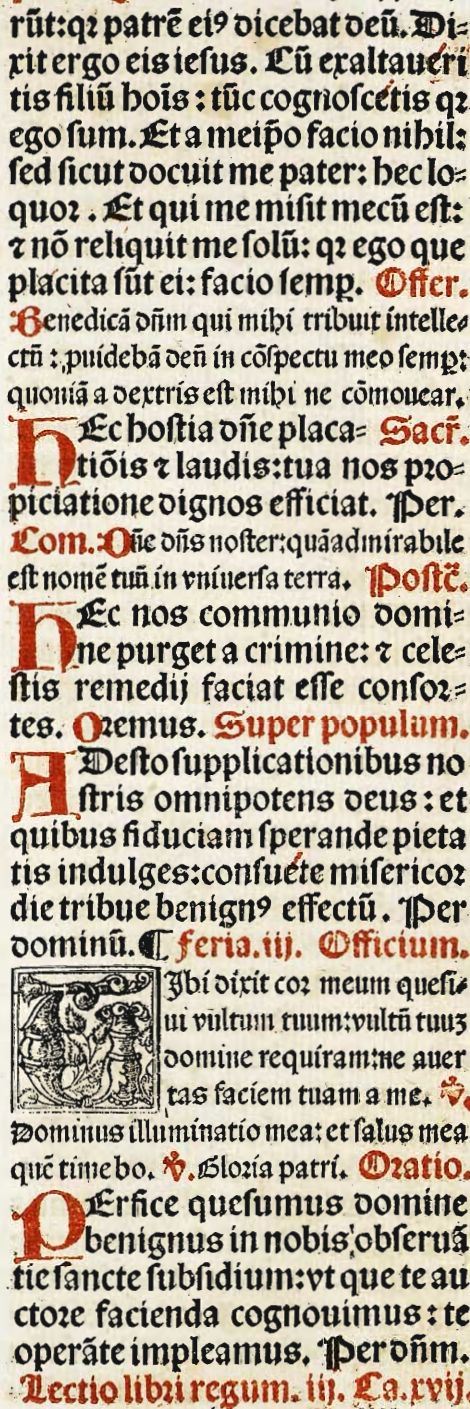 rūt:qꝛ patrē eiꝰ dicebat deū. Di-
xit ergo eis iesus. Cū exaltaueri
tis filiū hoīs : tūc cognoscetis qꝛ
ego sum. Et a meip̄o facio nihil:
sed sicut docuit me pater: hec lo-
quoꝛ . Et qui me misit mecū est:
⁊ nō reliquit me solū: qꝛ ego que
placita sūt ei: facio semꝑ. Offer.
Benedicā dn̄m qui mihi tribuit intelle-
ctū : ꝓuidebā deū in cōspectu meo semꝑ:
quoniā a dextris est mihi ne cōmouear.
HEc hostia dn̄e placa- Sacr̄.
tiōis ⁊ laudis:tua nos pꝛo-
piciatione dignos efficiat. Per.
Com. Dn̄e dn̄s noster:quā admirabile
est nomē tuū in vniuersa terra. Postc̄.
HEc nos communio domi-
ne purget a crimine: ⁊ cele-
stis remedij faciat esse consoꝛ-
tes. Oꝛemus. Super populum.
ADesto supplicationibus no
stris omnipotens deus : et
quibus fiduciam sperande pieta
tis indulges:consuete misericoꝛ
die tribue benignꝰ effectū. Per
dominū. ¶ feria.iij. Officium.
TIbi dixit coꝛ meum quesi-
ui vultum tuum:vultū tuuꝫ
domine requiram:ne auer
tas faciem tuam a me. ℣.
Dominus illuminatio mea: et salus mea
quē timebo. ℣. Gloꝛia patri. Oꝛatio.
PErfice quesumus domine
benignus in nobis obseruā
tie sancte subsidium:vt que te au
ctoꝛe facienda cognouimus : te
operāte impleamus. Per dn̄m.
Lectio libꝛi regum. iij. Ca.xvij